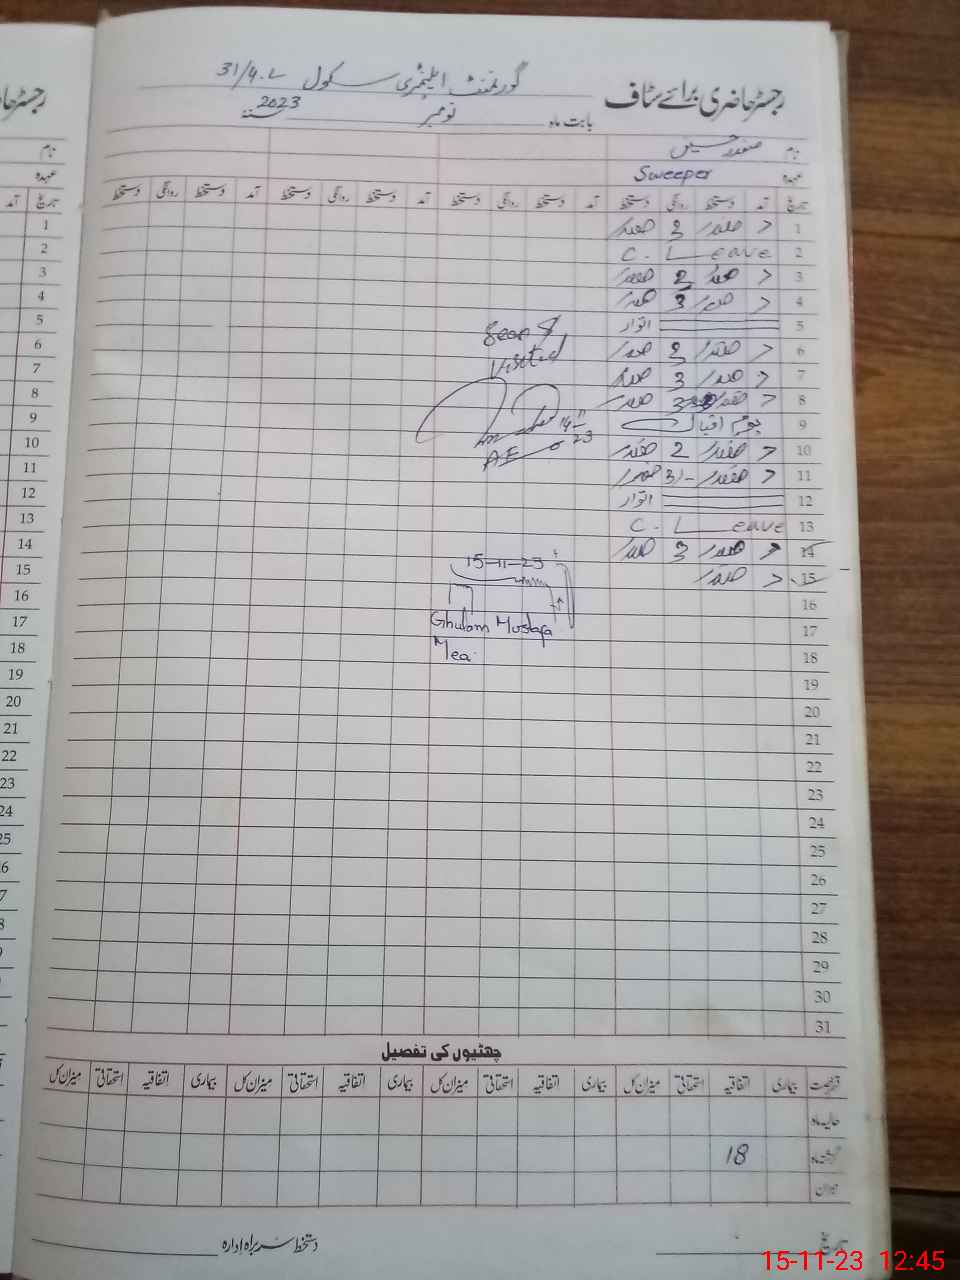 رجسٹر حاضری برائے سٹاف
گورنمنٹ ایلیمنٹری سکول 31/4.L
بابت ماہ نومبر 2023
نام صفدر حسین
عہدہ Sweeper
تاریخ آمد دستخط روانگی دستخط آمد دستخط روانگی دستخط آمد دستخط روانگی دستخط آمد دستخط روانگی دستخط
1 > صفدر 3 صفدر
2 C. Leave
3 > صفدر 2 صفدر
4 > صفدر 3 صفدر
5 اتوار
6 > صفدر 3 صفدر
7 > صفدر 3 صفدر
8 > صفدر 3 صفدر
9 یوم اقبال
10 > صفدر 2 صفدر
11 > صفدر 3 صفدر
12 اتوار
13 C. Leave
14 > صفدر 3 صفدر
15 > صفدر
16
17
18
19
20
21
22
23
24
25
26
27
28
29
30
31
Seen &
Visited
14-11
23
15-11-23
Ghulam Mustafa
Mea
چھٹیوں کی تفصیل
قسم رخصت بیماری اتفاقیہ استحقاقی میزان کل بیماری اتفاقیہ استحقاقی میزان کل بیماری اتفاقیہ استحقاقی میزان کل بیماری اتفاقیہ استحقاقی میزان کل
حالیہ ماہ
گزشتہ ماہ 18
میزان
تاریخ
دستخط سربراہ ادارہ
رجسٹر حا
نام
عہدہ
تاریخ آمد
1
2
3
4
5
6
7
8
9
10
11
12
13
14
15
16
17
18
19
20
21
22
23
24
25
15-11-23 12:45